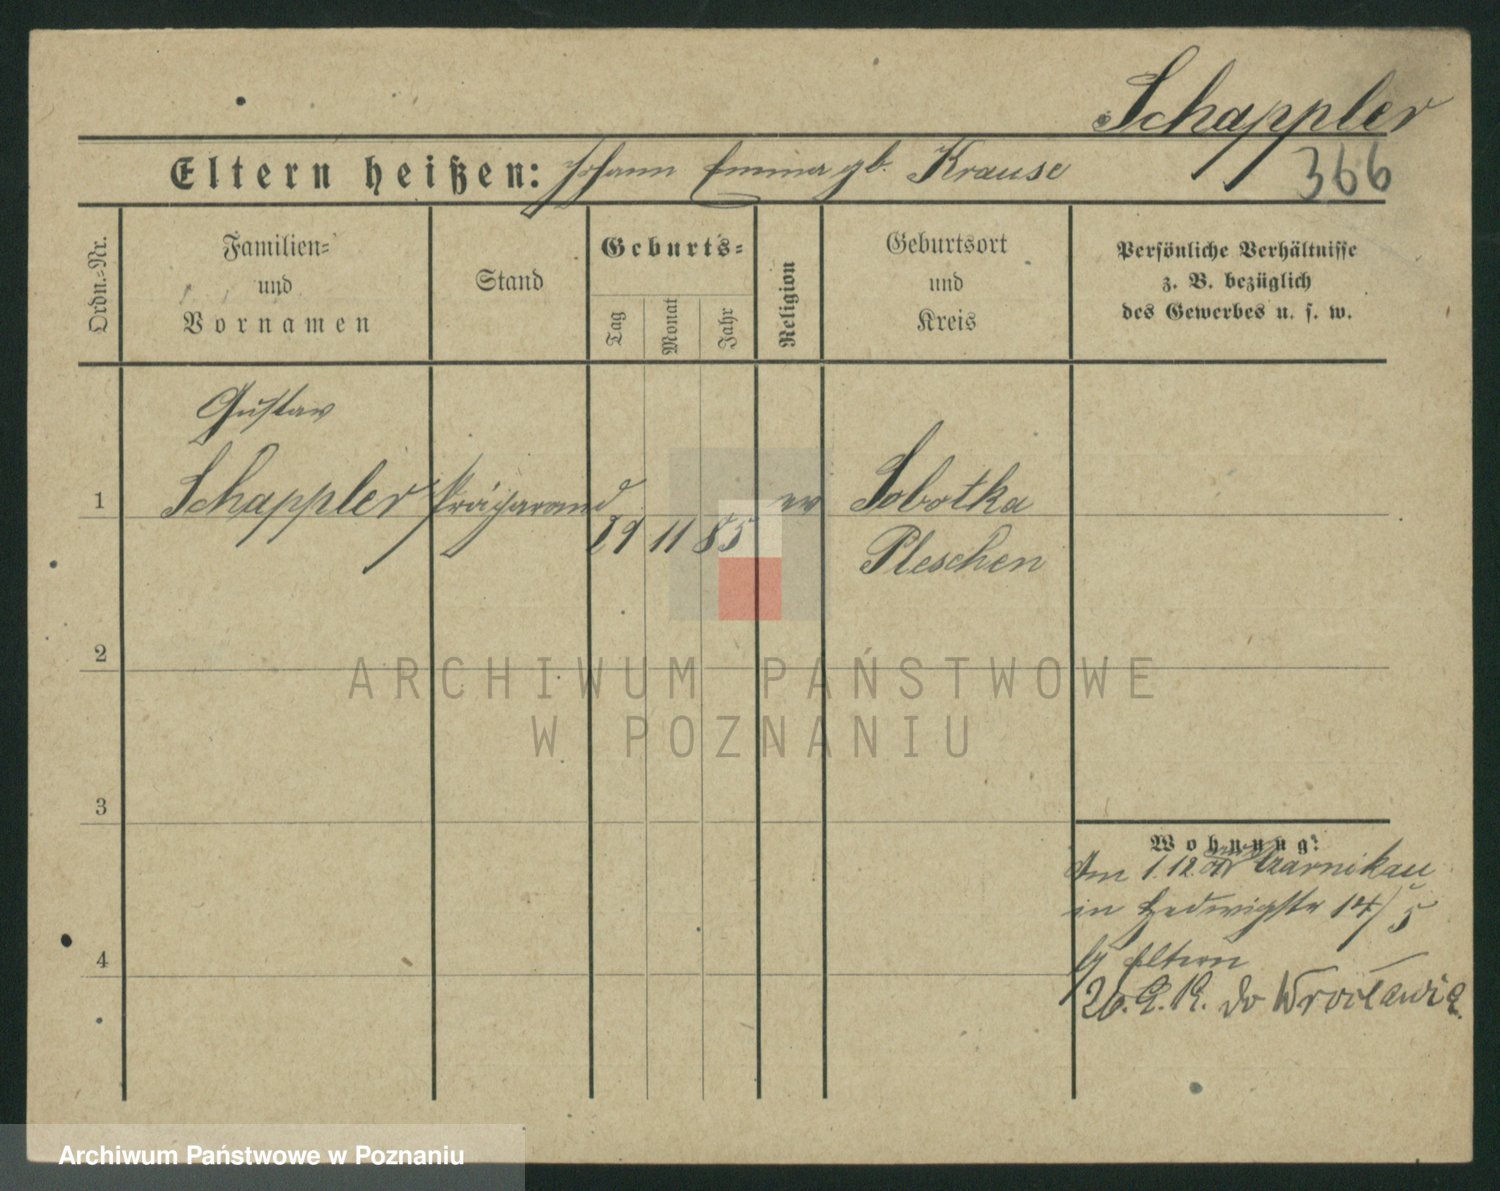 Schappler
366
Eltern heißen: Johann Emma gb. Krause
Ordn.-Nr.
Familien-
und
Vornamen
Stand
Geburts-
Tag
Monat
Jahr
Religion
Geburtsort
und
Kreis
Persönliche Verhältnisse
z. B. bezüglich
des Gewerbes u. s. w.
Gustav
1 Schappler Präparand 29 11 85 ev Sobotka
Pleschen
2
3
4
Wohnung:
Am 1.12. Czarnikau
in Hedwigstr 14/5
Eltern
26. do Wrocławia
ARCHIWUM PAŃSTWOWE
W POZNANIU
Archiwum Państwowe w Poznaniu